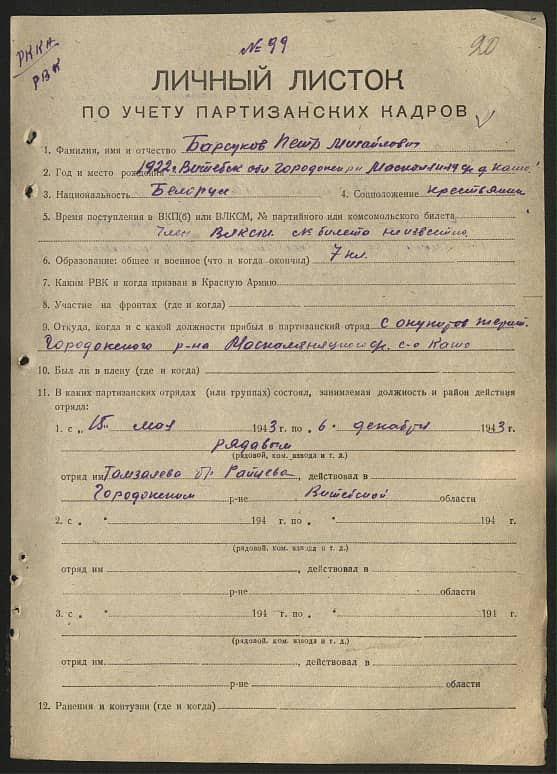 РККА
РВК
№ 99
20
ЛИЧНЫЙ ЛИСТОК
ПО УЧЕТУ ПАРТИЗАНСКИХ КАДРОВ
1. Фамилия, имя и отчество Барсуков Петр Михайлович
2. Год и место рождения 1922 г. Витебск обл Городокский р-н д. Кашо
3. Национальность Белорус 4. Соцположение крестьянин
5. Время поступления в ВКП(б) или ВЛКСМ, № партийного или комсомольского билета
Член ВЛКСМ № билета неизвестно
6. Образование: общее и военное (что и когда окончил) 7 кл.
7. Каким РВК и когда призван в Красную Армию
8. Участие на фронтах (где и когда)
9. Откуда, когда и с какой должности прибыл в партизанский отряд с территор.
Городокского р-на с-о Кашо
10. Был ли в плену (где и когда)
11. В каких партизанских отрядах (или группах) состоял, занимаемая должность и район действия
отряда:
1. с „ 15 " мая 1943 г. по „ 6 " декабря 1943 г.
рядавым
(рядовой, ком. взвода и т. д.)
отряд им бр Райцева, действовал в
Городокском р-не Витебской области
2. с „ " 194 г. по „ " 194 г.
(рядовой. ком. взвода и т. д.)
отряд им , действовал в
р-не области
3. с „ " 194 г. по „ " 194 г.
(рядовой, ком. взвода и т. д.)
отряд им. , действовал в
р-не области
12. Ранения и контузии (где и когда)